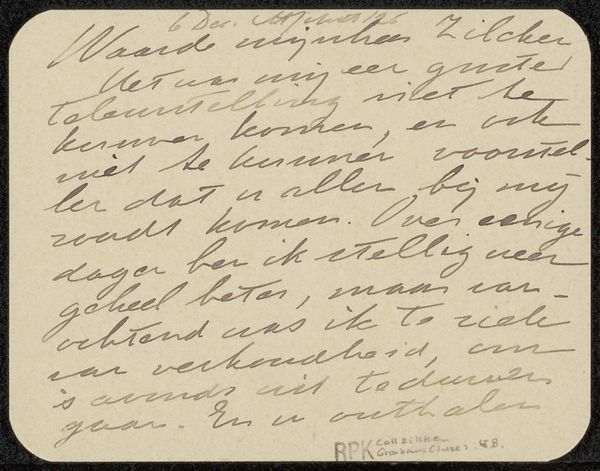 6 Dec.
Waarde mijnheer Zilcken
Het was mij een groote
teleurstelling niet te
kunnen komen, en ook
niet te kunnen voorstel-
len dat u allen bij mij
zoudt komen. Over eenige
dagen ben ik stellig weer
geheel beter, maar van-
ochtend was ik te ziek
van verkoudheid, om
's avonds uit te durven
gaan. En u onthalen
RPK coll zilcken